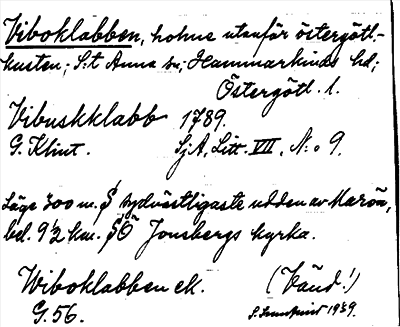 Viboklabben, holme utanför östergötl.-
kusten; S:t Anna sn; Hammarkinds hd;
Östergötl. l.
Vibuskklabb 1789.
G. Klint. SjA, Litt. VII, N:o 9.
Läge 300 m. S sydvästligaste udden av Marön,
bel. 9½ km. SÖ Jonsbergs kyrka.
Wiboklabben ek. (Vänd!)
G. 56. 1939.